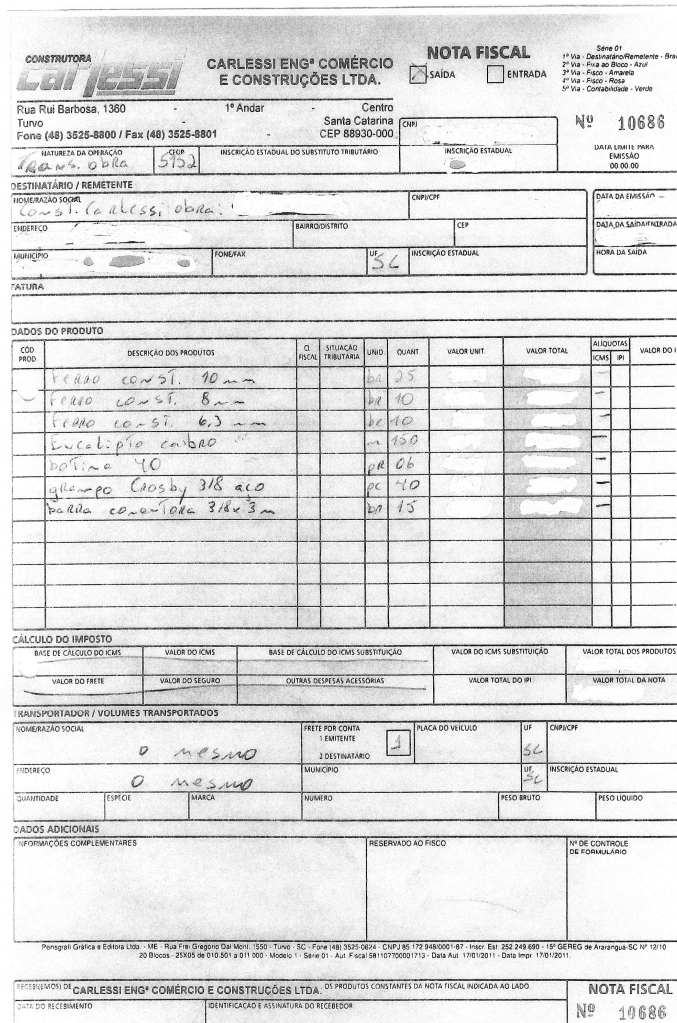 CONSTRUTORA
carlessi
CARLESSI ENGª COMÉRCIO
E CONSTRUÇÕES LTDA.
NOTA FISCAL
SAÍDA ENTRADA
Série 01
1ª Via - Destinatário/Remetente - Bra
2ª Via - Fixa ao Bloco - Azul
3ª Via - Fisco - Amarela
4ª Via - Fisco - Rosa
5ª Via - Contabilidade - Verde
Rua Rui Barbosa, 1360 - 1º Andar - Centro
Turvo Santa Catarina
Fone (48) 3525-8800 / Fax (48) 3525-8801 - CEP 88930-000
CNPJ
Nº 10686
NATUREZA DA OPERAÇÃO CFOP INSCRIÇÃO ESTADUAL DO SUBSTITUTO TRIBUTÁRIO INSCRIÇÃO ESTADUAL
Trans. obra 5152
DATA LIMITE PARA
EMISSÃO
00.00.00
DESTINATÁRIO / REMETENTE
NOME/RAZÃO SOCIAL CNPJ/CPF DATA DA EMISSÃO
Const. Carlessi obra:
ENDEREÇO BAIRRO/DISTRITO CEP DATA DA SAÍDA/ENTRADA
MUNICÍPIO FONE/FAX UF INSCRIÇÃO ESTADUAL HORA DA SAÍDA
SC
FATURA
DADOS DO PRODUTO
CÓD PROD. DESCRIÇÃO DOS PRODUTOS CL FISCAL SITUAÇÃO TRIBUTÁRIA UNID QUANT VALOR UNIT. VALOR TOTAL ALÍQUOTAS ICMS IPI VALOR DO I
Ferro const. 10 mm br 25 -
Ferro const. 8 mm br 10 -
Ferro const. 6,3 mm br 10 -
Eucalipto caibro m 150 -
botina 40 pR 06 -
grampo Crosby 318 aço pc 40 -
barra 318x3m br 15 -
CÁLCULO DO IMPOSTO
BASE DE CÁLCULO DO ICMS VALOR DO ICMS BASE DE CÁLCULO DO ICMS SUBSTITUIÇÃO VALOR DO ICMS SUBSTITUIÇÃO VALOR TOTAL DOS PRODUTOS
VALOR DO FRETE VALOR DO SEGURO OUTRAS DESPESAS ACESSÓRIAS VALOR TOTAL DO IPI VALOR TOTAL DA NOTA
TRANSPORTADOR / VOLUMES TRANSPORTADOS
NOME/RAZÃO SOCIAL FRETE POR CONTA PLACA DO VEÍCULO UF CNPJ/CPF
1 EMITENTE
o mesmo 1 SC
2 DESTINATÁRIO
ENDEREÇO MUNICIPIO UF INSCRIÇÃO ESTADUAL
O mesmo SC
QUANTIDADE ESPÉCIE MARCA NUMERO PESO BRUTO PESO LÍQUIDO
DADOS ADICIONAIS
INFORMAÇÕES COMPLEMENTARES RESERVADO AO FISCO Nº DE CONTROLE
DE FORMULÁRIO
Pensgrafi Gráfica e Editora Ltda. - ME - Rua Frei Gregório Dal Mont, 1550 - Turvo - SC - Fone (48) 3525-0624 - CNPJ 85.172.948/0001-87 - Inscr. Est. 252.249.690 - 15ª GEREG de Ararangua-SC Nº 12/10
20 Blocos - 25X05 de 010.501 a 011.000 - Modelo 1 - Série 01 - Aut. Fiscal 581107700001713 - Data Aut. 17/01/2011 - Data Impr. 17/01/2011.
RECEBI(EMOS) DE CARLESSI ENGª COMÉRCIO E CONSTRUÇÕES LTDA. OS PRODUTOS CONSTANTES DA NOTA FISCAL INDICADA AO LADO.
NOTA FISCAL
DATA DO RECEBIMENTO IDENTIFICAÇÃO E ASSINATURA DO RECEBEDOR
Nº 10686